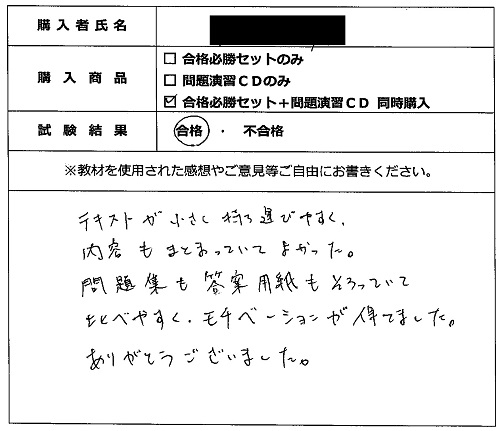 購入者氏名
購入商品
□ 合格必勝セットのみ
□ 問題演習CDのみ
☑ 合格必勝セット+問題演習CD 同時購入
試験結果
合格 ・ 不合格
※教材を使用された感想やご意見等ご自由にお書きください。
テキストが小さく持ち運びやすく、
内容もまとまっていてよかった。
問題集も答案用紙もそろっていて
比べやすく、モチベーションが保てました。
ありがとうございました。